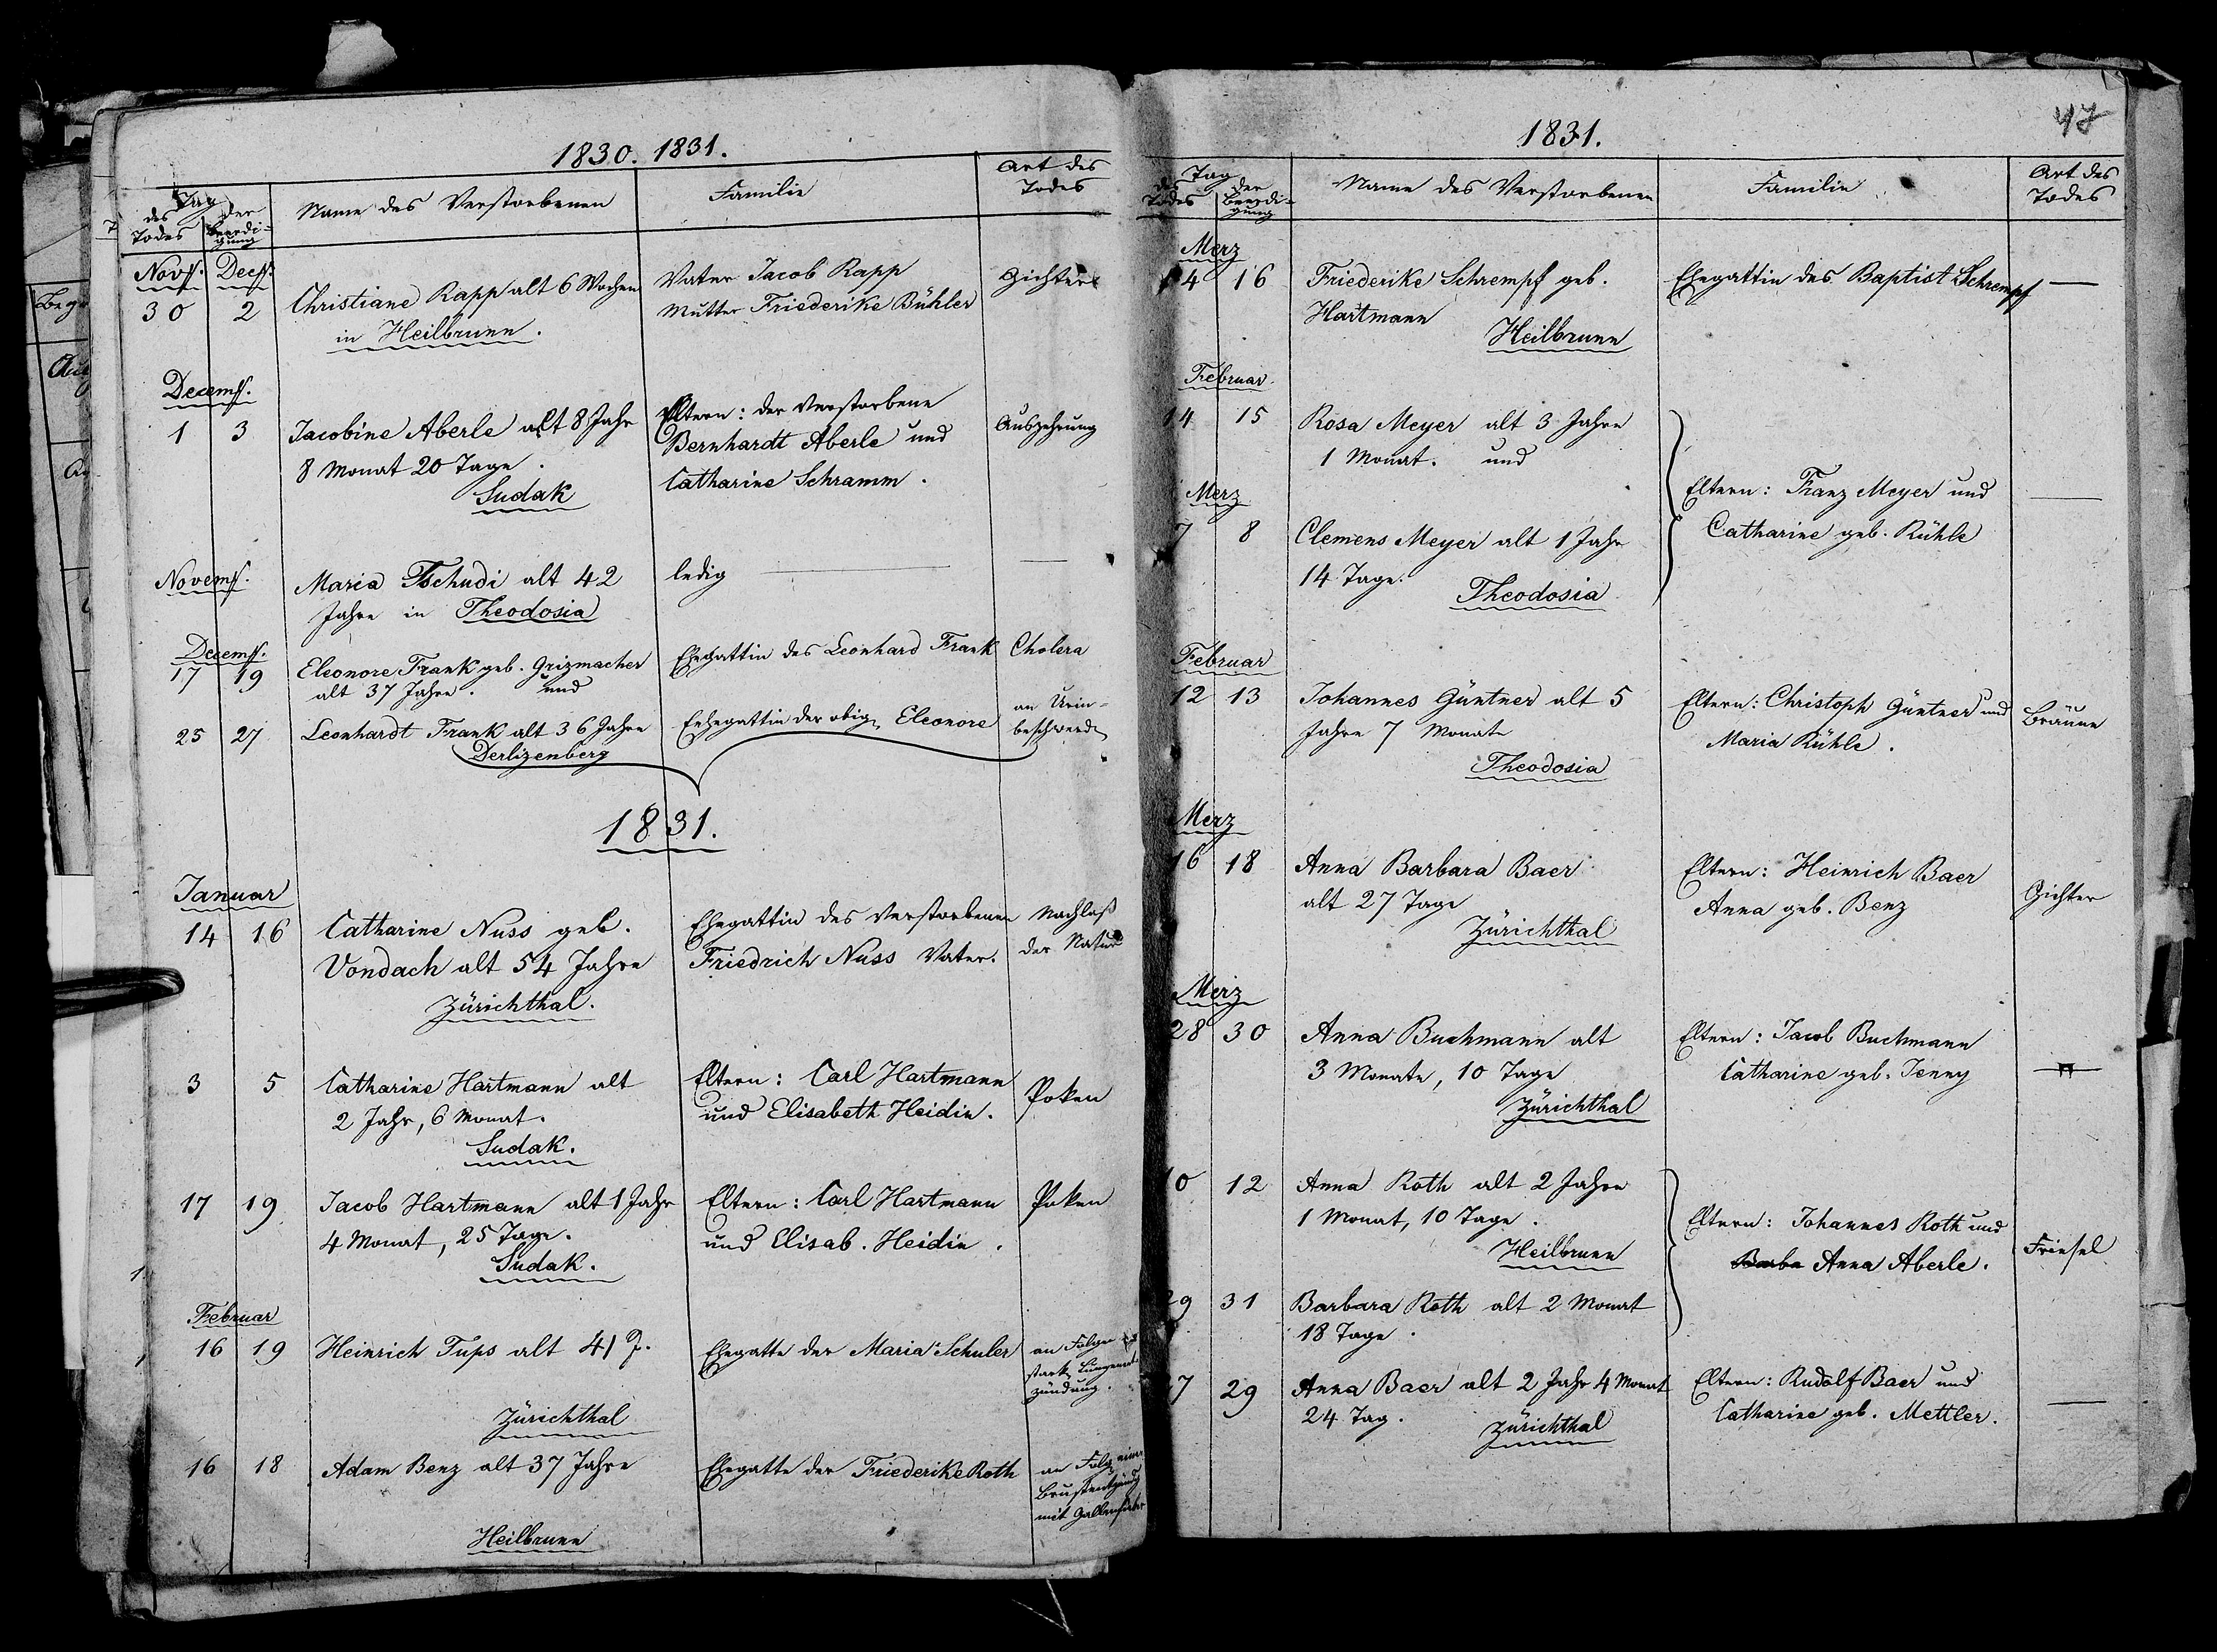 1830. 1831.
Tag
des Todes
der Beerdi-
gung
Name des Verstorbenen
Familie
Art des
Todes
Novb. Decb.
30 2 Christiane Rapp alt 6 Wochen
in Heilbrunn.
Vater Jacob Rapp
Mutter Friederike Bühler
Gichter
Decemb.
1 3 Jacobine Aberle alt 8 Jahr
8 Monat 20 Tage.
Sudak
Eltern: der Verstorbene
Bernhardt Aberle und
Catharine Schramm.
Auszehrung
Novemb.
Maria Tschudi alt 42
Jahre in Theodosia
ledig
Decemb.
17 19 Eleonore Frank geb. Grizmacher
alt 37 Jahre. und
Ehegattin des Leonhard Frank
Cholera
25 27 Leonhardt Frank alt 36 Jahre
Derlizenberg
Ehegattin der obig. Eleonore
an Urin-
beschwerd.
1831.
Januar
14 16 Catharine Nuss geb.
Vondach alt 54 Jahre
Zürichthal.
Ehegattin des Verstorbenen
Friedrich Nuss Vater.
Nachlaß
der Natur
3 5 Catharine Hartmann alt
2 Jahr, 6 Monat.
Sudak.
Eltern: Carl Hartmann
und Elisabeth Heidin.
Poken
17 19 Jacob Hartmann alt 1 Jahr
4 Monat, 25 Tage.
Sudak.
Eltern: Carl Hartmann
und Elisab. Heidin.
Poken
Februar
16 19 Heinrich Tups alt 41 J.
Zürichthal
Ehegatte der Maria Schuler
an Folgen
stark. Lungenent-
zündung.
16 18 Adam Benz alt 37 Jahre
Heilbrunn
Ehegatte der Friederike Roth
an Folg. einer
Brustentzünd
mit Gallenfieber
47
1831.
Tag
des
Todes
der
Beerdi-
gung
Name des Verstorbenen
Familie
Art des
Todes
Merz
14 16 Friederike Schrempf geb.
Hartmann Heilbrunn
Ehegattin des Baptist Schrempf
Februar
14 15 Rosa Meyer alt 3 Jahre
1 Monat. und
Merz
7 8 Clemens Meyer alt 1 Jahr
14 Tage.
Theodosia
Eltern: Franz Meyer und
Catharine geb. Kühle
Februar
12 13 Johannes Güntner alt 5
Jahre 7 Monate
Theodosia
Eltern: Christoph Güntner und
Maria Kühle.
Bräune
Merz
16 18 Anna Barbara Baer
alt 27 Tage
Zürichthal
Eltern: Heinrich Baer
Anna geb. Benz
Gichter
Merz
28 30 Anna Buchmann alt
3 Monate, 10 Tage
Zürichthal
Eltern: Jacob Buchmann
Catharine geb. Jenny
10 12 Anna Roth alt 2 Jahre
1 Monat, 10 Tage.
Heilbrunn
29 31 Barbara Roth alt 2 Monat
18 Tage.
Eltern: Johannes Roth und
Barba Anna Aberle.
Friesel
27 29 Anna Baer alt 2 Jahr 4 Monat
24 Tag.
Zürichthal
Eltern: Rudolf Baer und
Catharine geb. Mettler.